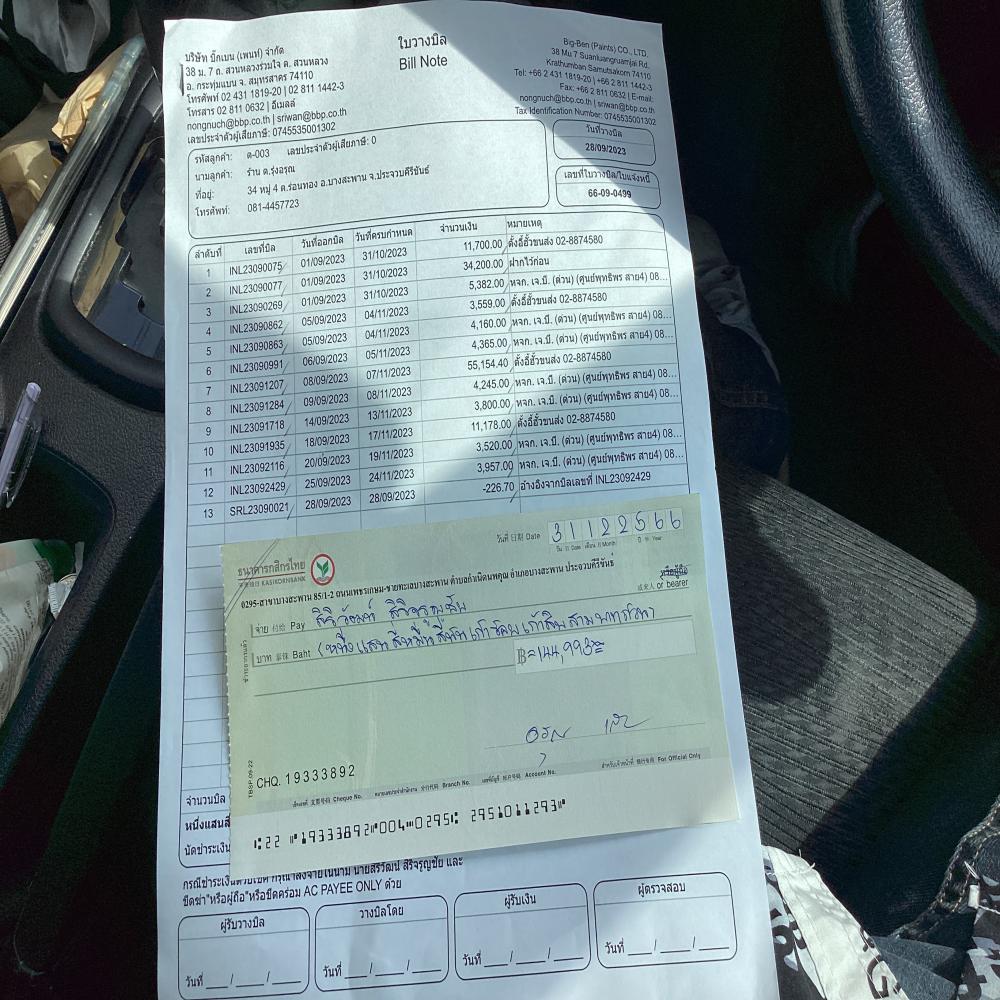 บริษัท บิ๊กเบน (เพนท์) จำกัด
38 ม. 7 ถ. สวนหลวงร่วมใจ ต. สวนหลวง
อ. กระทุ่มแบน จ. สมุทรสาคร 74110
โทรศัพท์ 02 431 1819-20 | 02 811 1442-3
โทรสาร 02 811 0632 | อีเมลล์
nongnuch@bbp.co.th | sriwan@bbp.co.th
เลขประจำตัวผู้เสียภาษี: 0745535001302
ใบวางบิล
Bill Note
Big-Ben (Paints) CO., LTD.
38 Mu 7 Suanluangruamjai Rd.
Krathumban Samutsakorn 74110
Tel: +66 2 431 1819-20 | +66 2 811 1442-3
Fax: +66 2 811 0632 | E-mail:
nongnuch@bbp.co.th | sriwan@bbp.co.th
Tax Identification Number: 0745535001302
รหัสลูกค้า: ด-003 เลขประจำตัวผู้เสียภาษี: 0
นามลูกค้า: ร้าน ด.รุ่งอรุณ
ที่อยู่: 34 หมู่ 4 ต.ร่อนทอง อ.บางสะพาน จ.ประจวบคีรีขันธ์
โทรศัพท์: 081-4457723
วันที่วางบิล
28/09/2023
เลขที่ใบวางบิล/ใบแจ้งหนี้
66-09-0499
ลำดับที่ เลขที่บิล วันที่ออกบิล วันที่ครบกำหนด จำนวนเงิน หมายเหตุ
1 INL23090075 01/09/2023 31/10/2023 11,700.00 ตั้งฮี้ฮั้วขนส่ง 02-8874580
2 INL23090077 01/09/2023 31/10/2023 34,200.00 ฝากไว้ก่อน
3 INL23090269 01/09/2023 31/10/2023 5,382.00 หจก. เจ.บี. (ด่วน) (ศูนย์พุทธิพร สาย4) 08...
4 INL23090862 05/09/2023 04/11/2023 3,559.00 ตั้งฮี้ฮั้วขนส่ง 02-8874580
5 INL23090863 05/09/2023 04/11/2023 4,160.00 หจก. เจ.บี. (ด่วน) (ศูนย์พุทธิพร สาย4) 08...
6 INL23090991 06/09/2023 05/11/2023 4,365.00 หจก. เจ.บี. (ด่วน) (ศูนย์พุทธิพร สาย4) 08...
7 INL23091207 08/09/2023 07/11/2023 55,154.40 ตั้งฮี้ฮั้วขนส่ง 02-8874580
8 INL23091284 09/09/2023 08/11/2023 4,245.00 หจก. เจ.บี. (ด่วน) (ศูนย์พุทธิพร สาย4) 08...
9 INL23091718 14/09/2023 13/11/2023 3,800.00 หจก. เจ.บี. (ด่วน) (ศูนย์พุทธิพร สาย4) 08...
10 INL23091935 18/09/2023 17/11/2023 11,178.00 ตั้งฮี้ฮั้วขนส่ง 02-8874580
11 INL23092116 20/09/2023 19/11/2023 3,520.00 หจก. เจ.บี. (ด่วน) (ศูนย์พุทธิพร สาย4) 08...
12 INL23092429 25/09/2023 24/11/2023 3,957.00 หจก. เจ.บี. (ด่วน) (ศูนย์พุทธิพร สาย4) 08...
13 SRL23090021 28/09/2023 28/09/2023 -226.70 อ้างอิงจากบิลเลขที่ INL23092429
ธนาคารกสิกรไทย
KASIKORNBANK
วันที่ 日期 Date 31122566
วัน 日 Date เดือน 月 Month ปี 年 Year
0295-สาขาบางสะพาน 85/1-2 ถนนเพชรเกษม-ชายทะเลบางสะพาน ตำบลกำเนิดนพคุณ อำเภอบางสะพาน ประจวบคีรีขันธ์
หรือผู้ถือ
或来人 or bearer
จ่าย 付给 Pay สิริวัฒน์ สิริจรูญชัย
บาท 泰铢 Baht (หนึ่งแสนสี่หมื่นสี่พันเก้าร้อยเก้าสิบสามบาทถ้วน)
฿ =144,993=
CHQ. 19333892
TBSP 09-22
เช็คเลขที่ 支票号码 Cheque No. หมายเลขประจำสำนักงาน 分行代码 Branch No. เลขที่บัญชี 帐户号码 Account No. สำหรับเจ้าหน้าที่ 银行专用 For Official Only
⑆22 ⑈19333892⑈004⑉0295⑆ 2951011293⑈
จำนวนบิล
หนึ่งแสนสี่
นัดชำระเงิน
กรณีชำระเงินด้วยเช็ค กรุณาสั่งจ่ายในนาม นายสิริวัฒน์ สิริจรูญชัย และ
ขีดฆ่า"หรือผู้ถือ"หรือขีดคร่อม AC PAYEE ONLY ด้วย
ผู้รับวางบิล วางบิลโดย ผู้รับเงิน ผู้ตรวจสอบ
วันที่ ___/___/___ วันที่ ___/___/___ วันที่ ___/___/___ วันที่ ___/___/___